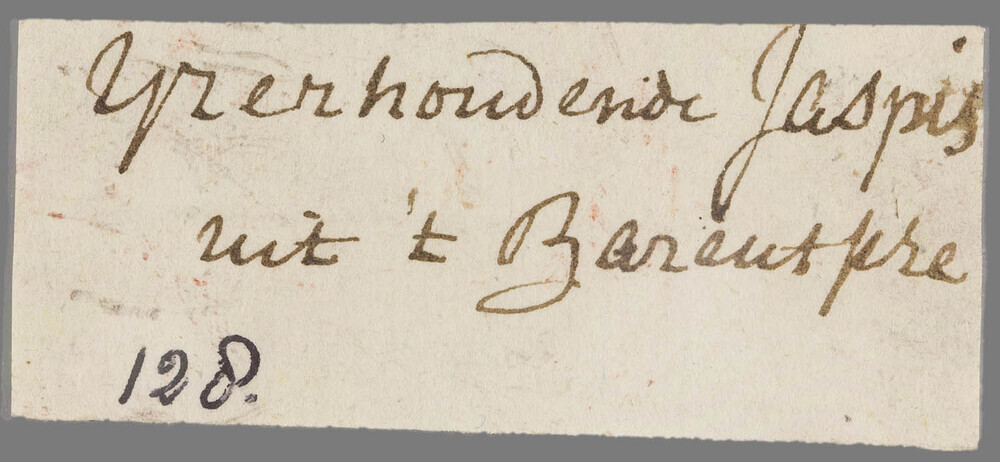 Yzerhoudende Jaspis
uit 't Bareutsche
128.